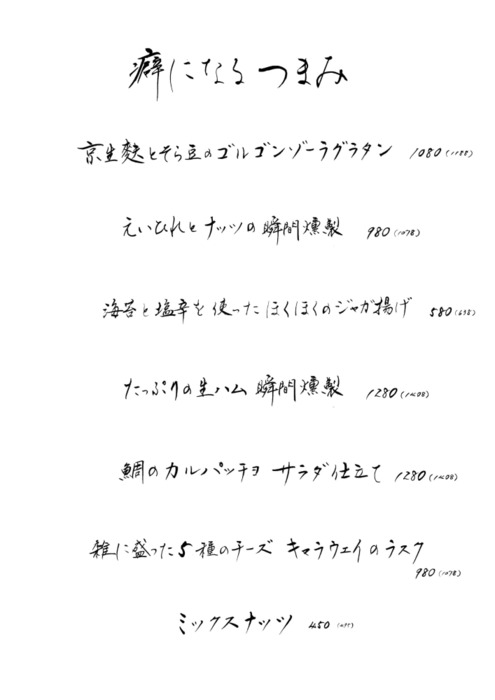 癖になるつまみ
京生麩とそら豆のゴルゴンゾーラグラタン 1080(1188)
えいひれとナッツの瞬間燻製 980(1078)
海苔と塩辛を使ったほくほくのジャガ揚げ 580(638)
たっぷりの生ハム 瞬間燻製 1280(1408)
鯛のカルパッチョ サラダ仕立て 1280(1408)
雑に盛った5種のチーズ キャラウェイのラスク
980(1078)
ミックスナッツ 450